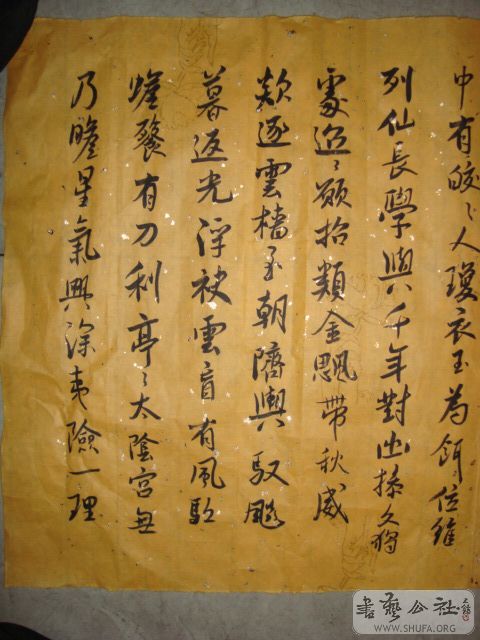 中有皎〻人瓊衣玉為餌位維
列仙長學與千年對幽操久獨
處迢〻願招類金飈帶秋威
欻逐雲檣至朝隮輿馭飈
暮返光浮袂雲盲有風駈
蟾餮有刀利亭〻太陰宮無
乃瞻星氣興深夷險一理
書藝公社
WWW.SHUFA.ORG